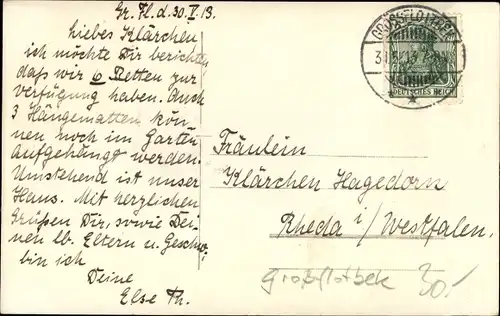 Gr. Fl. d. 30. V. 13.
Liebes Klärchen
ich möchte Dir berichten
daß wir 6 Betten zur
Verfügung haben. Auch
3 Hängematten kön-
nen noch im Garten
aufgehängt werden.
Umstehend ist unser
Haus. Mit herzlichen
Grüßen Dir, sowie Dei-
nen lb. Eltern u. Geschw.
bin ich
Deine
Else Th.
DEUTSCHES REICH
Fräulein
Klärchen Hagedorn
Rheda i/Westfalen.
Großflotbek 30.-